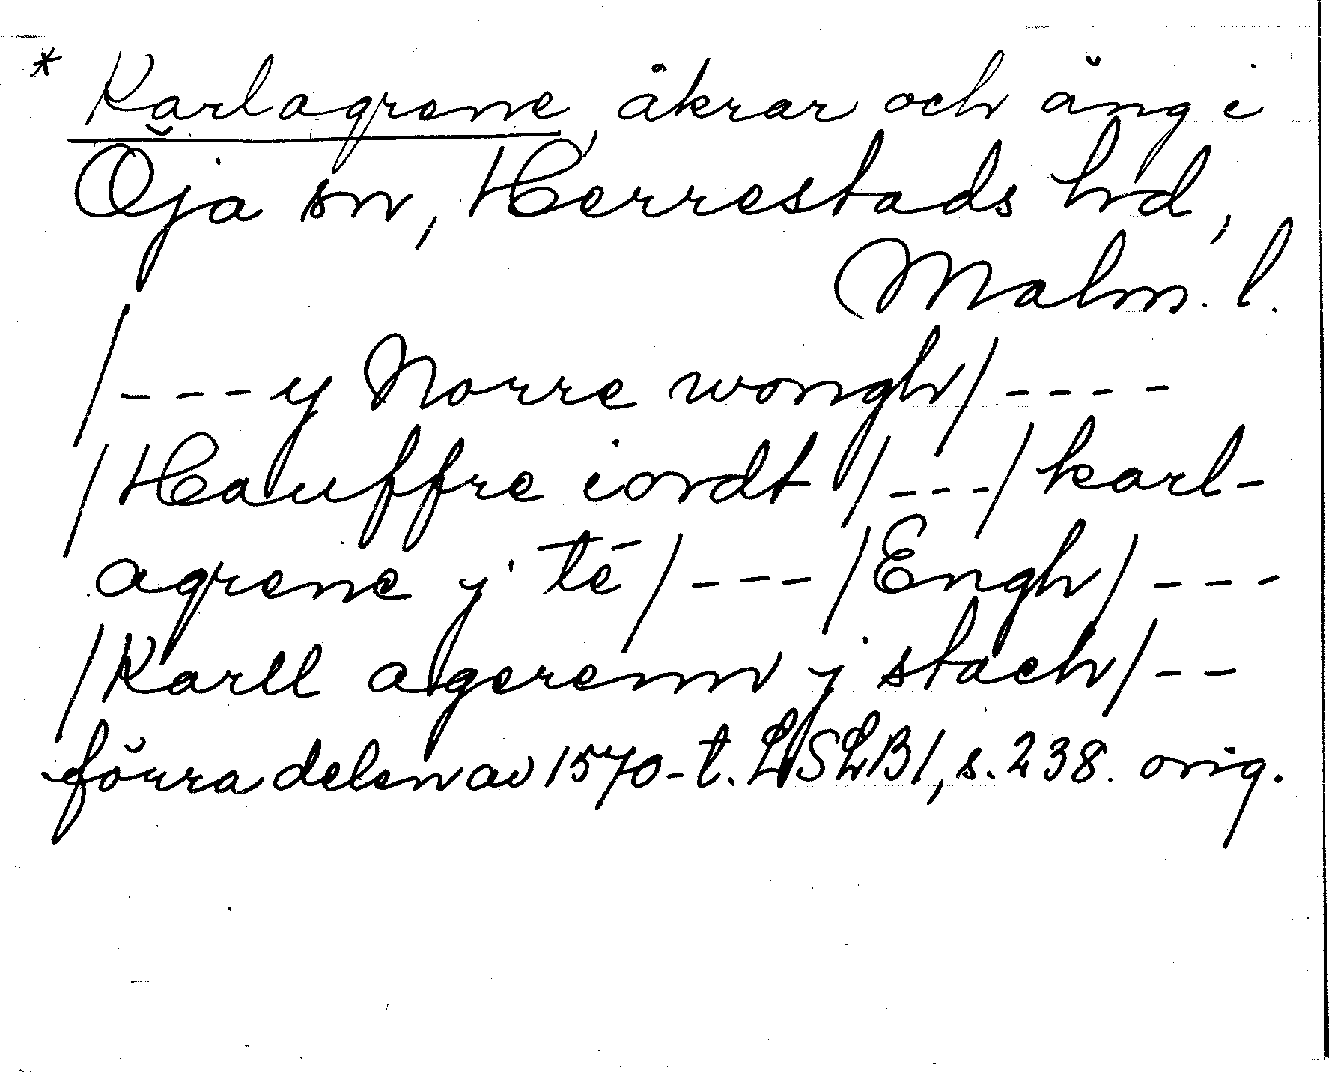 * Karlagrene, åkrar och äng i
Öja sn, Herrestads hd,
Malm. l.
/---y Norre wongh/----
/Hauffre iordt/---/karl-
agrene y té/---/Engh/---
/Karll agerenn y stach/--
förra delen av 1570-t. LSLB1, s. 238. orig.